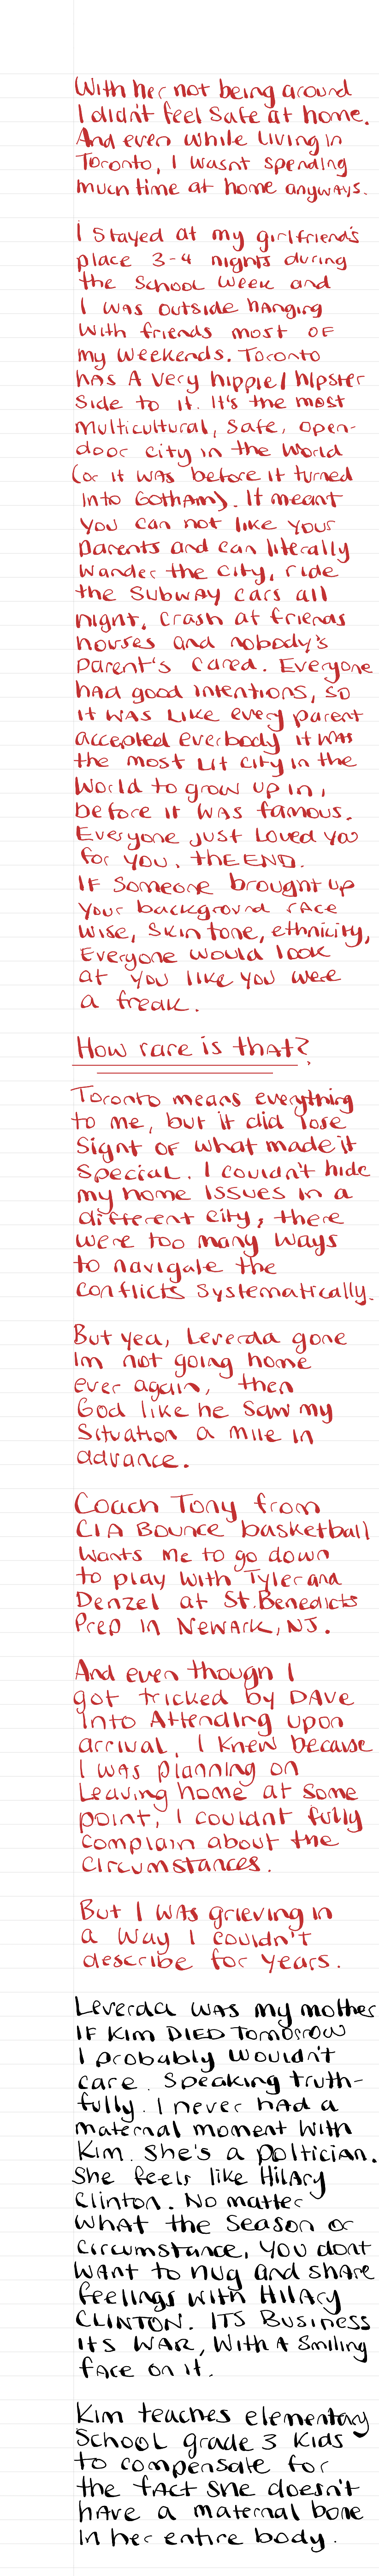 With her not being around
I didn't feel safe at home.
And even while living in
Toronto, I wasnt spending
much time at home anyways.
I stayed at my girlfriend's
place 3-4 nights during
the school week and
I was outside hanging
with friends most of
my weekends. Toronto
has a very hippie/hipster
side to it. It's the most
multicultural, safe, open-
door city in the world
(or it was before it turned
into Gotham). It meant
you can not like your
parents and can literally
wander the city, ride
the subway cars all
night, crash at friends
houses and nobody's
parent's cared. Everyone
had good intentions, so
it was like every parent
accepted everbody it was
the most lit city in the
world to grow up in,
before it was famous.
Everyone just loved you
for you. thEEND.
If someone brought up
your background race
wise, skin tone, ethnicity,
Everyone would look
at you like you were
a freak.
How rare is that?
Toronto means everything
to me, but it did lose
sight of what made it
special. I couldn't hide
my home issues in a
different city, there
were too many ways
to navigate the
conflicts systematically.
But yea, Leverda gone
Im not going home
ever again, then
God like he saw my
situation a mile in
advance.
Coach Tony from
CIA Bounce basketball
wants me to go down
to play with Tyler and
Denzel at St.Benedicts
Prep in Newark, NJ.
And even though I
got tricked by Dave
into attending upon
arrival, I knew because
I was planning on
leaving home at some
point, I couldnt fully
complain about the
circumstances.
But I was grieving in
a way I couldn't
describe for years.
Leverda was my mother
IF Kim DIED Tomorrow
I probably wouldn't
care. Speaking truth-
fully. I never had a
maternal moment with
Kim. She's a poltician.
She feels like Hilary
Clinton. No matter
what the season or
circumstance, you dont
want to hug and share
feelings with Hilary
CLINTON. ITS Business
its war, with a smiling
face on it.
Kim teaches elementary
school grade 3 kids
to compensate for
the fact she doesn't
have a maternal bone
in her entire body.